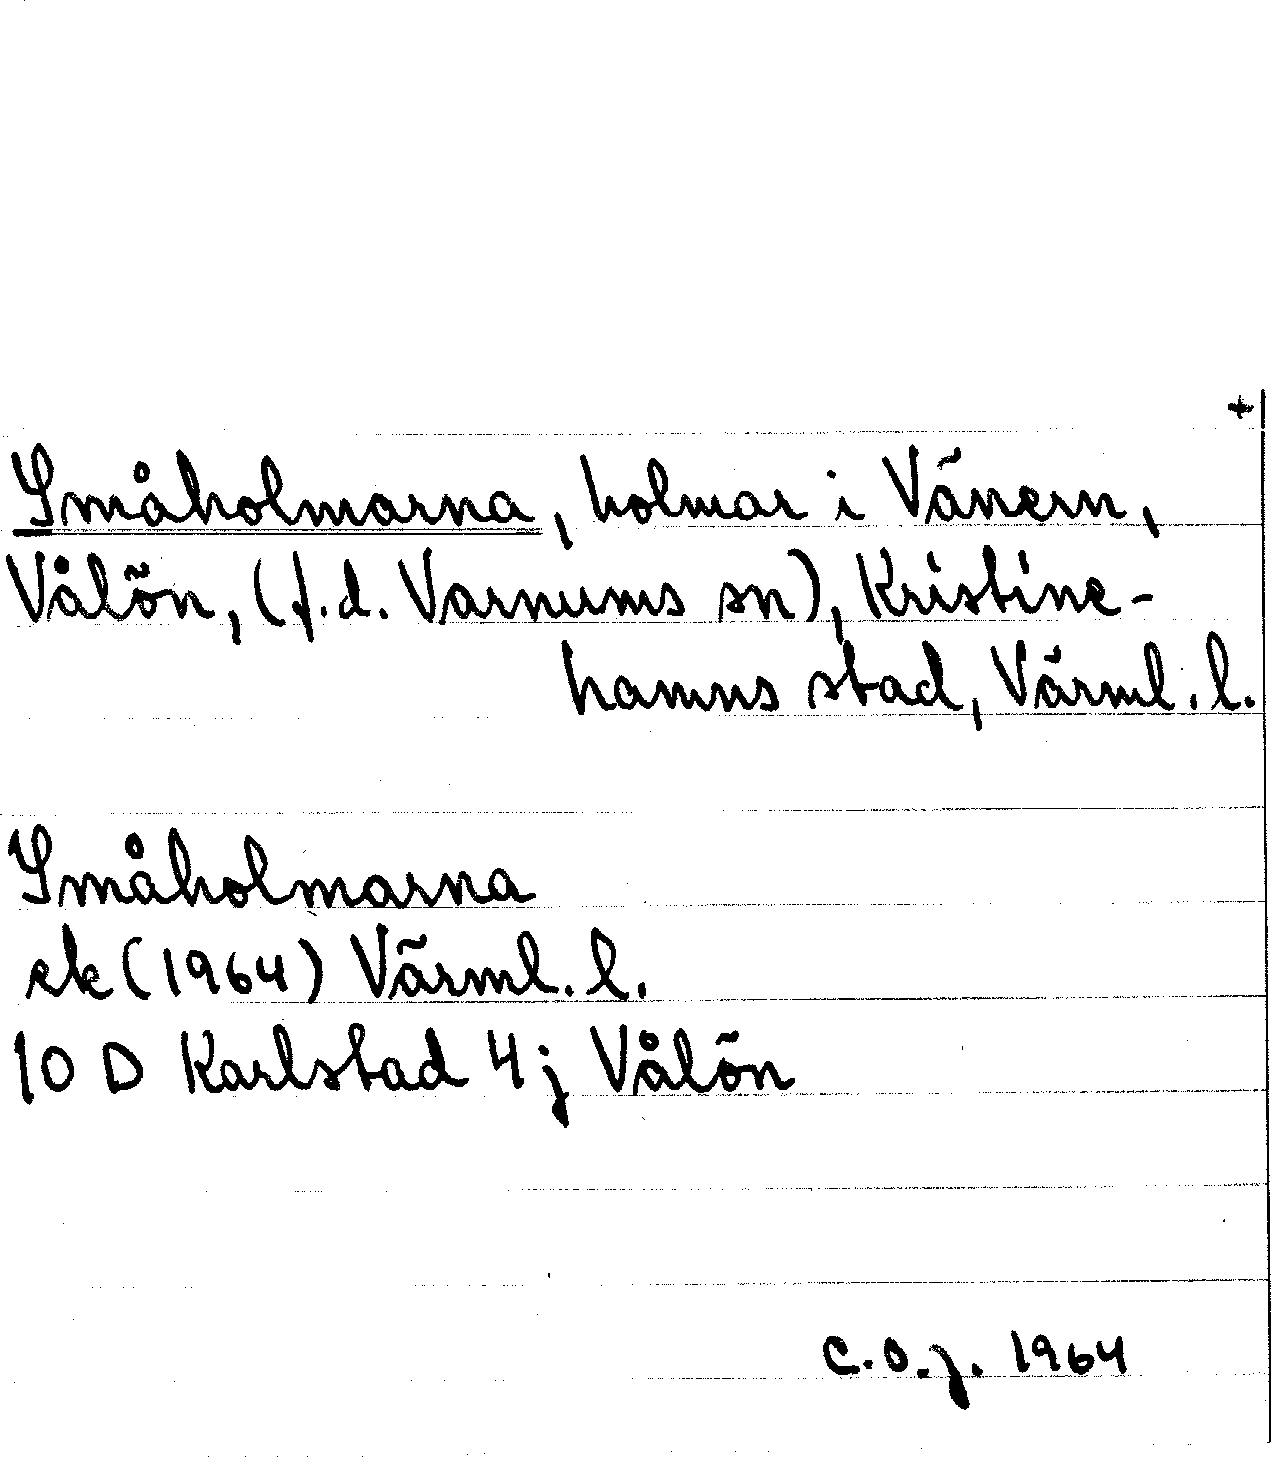 +
Småholmarna, holmar i Vänern,
Vålön, (f.d. Varnums sn), Kristine-
hamns stad, Värml. l.
Småholmarna
ek (1964) Värml. l.
10 D Karlstad 4 j Vålön
C.O.J. 1964